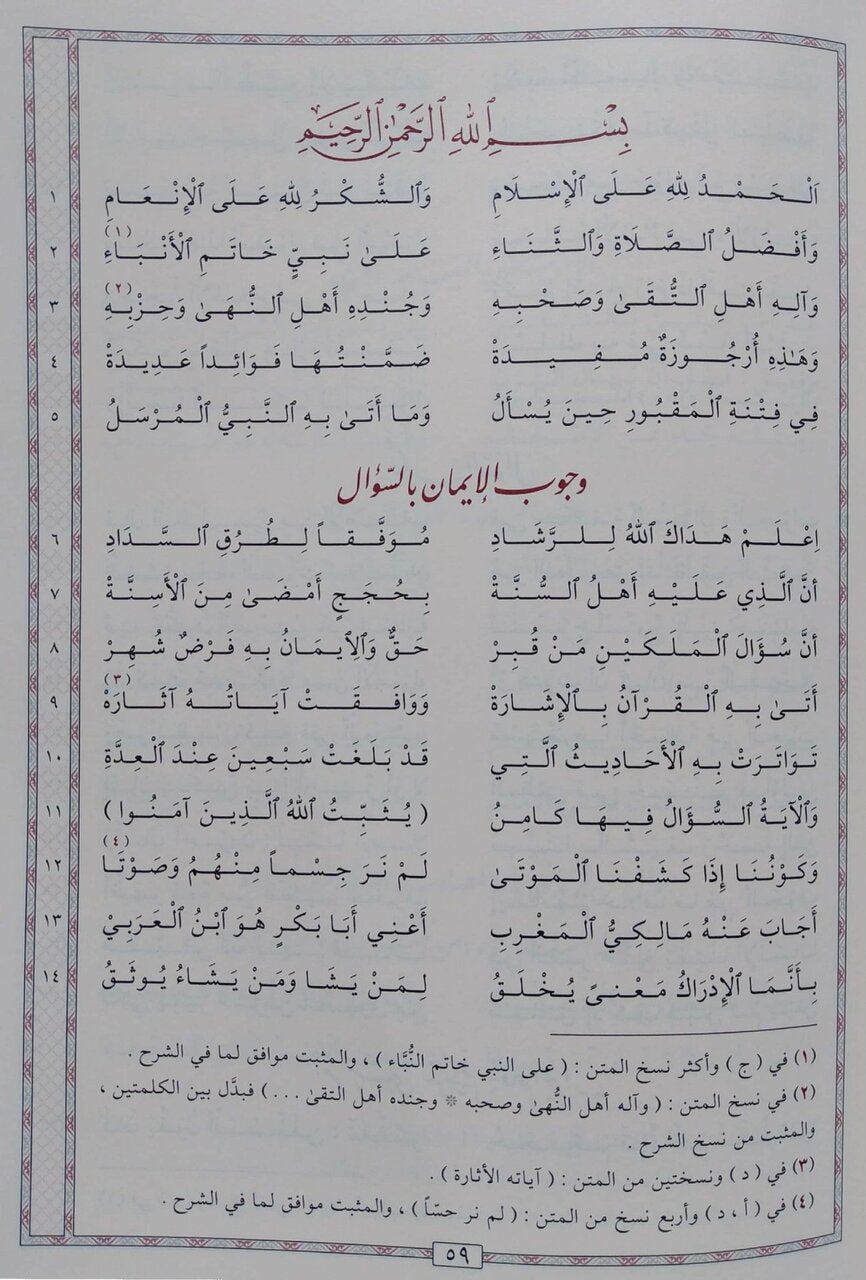 بِسْمِ ٱللهِ ٱلرَّحْمٰنِ ٱلرَّحِيْمِ
اَلْحَمْدُ لِلهِ عَلَى ٱلْإِسْلَامِ وَٱلشُّكْرُ لِلهِ عَلَى ٱلْإِنْعَامِ ١
وَأَفْضَلُ ٱلصَّلَاةِ وَٱلثَّنَاءِ عَلَىٰ نَبِيٍّ خَاتَمِ ٱلْأَنْبَاءِ (١) ٢
وَآلِهِ أَهْلِ ٱلتُّقَىٰ وَصَحْبِهِ وَجُنْدِهِ أَهْلِ ٱلنُّهَىٰ وَحِزْبِهِ (٢) ٣
وَهَـٰذِهِ أُرْجُوزَةٌ مُفِيدَةْ ضَمَّنْتُهَا فَوَائِداً عَدِيدَةْ ٤
فِي فِتْنَةِ ٱلْمَقْبُورِ حِينَ يُسْأَلُ وَمَا أَتَىٰ بِهِ ٱلنَّبِيُّ ٱلْمُرْسَلُ ٥
وجوب الإيمان بالسّؤال
اِعْلَمْ هَدَاكَ ٱللهُ لِلرَّشَادِ مُوَفَّقاً لِطُرُقِ ٱلسَّدَادِ ٦
أنَّ ٱلَّذِي عَلَيْهِ أَهْلُ ٱلسُّنَّةْ بِحُجَجٍ أَمْضَىٰ مِنَ ٱلْأَسِنَّةْ ٧
أنَّ سُؤَالَ ٱلْمَلَكَيْنِ مَنْ قُبِرْ حَقٌّ وَٱلِٱيمَانُ بِهِ فَرْضٌ شُهِرْ ٨
أَتَىٰ بِهِ ٱلْقُرْآنُ بِٱلْإِشَارَةْ وَوَافَقَتْ آيَاتُهُ آثَارَهْ (٣) ٩
تَوَاتَرَتْ بِهِ ٱلْأَحَادِيثُ ٱلَّتِي قَدْ بَلَغَتْ سَبْعِينَ عِنْدَ ٱلْعِدَّةِ ١٠
وَٱلْآيَةُ ٱلسُّؤَالُ فِيهَا كَامِنُ ( يُثَبِّتُ ٱللهُ ٱلَّذِينَ آمَنُوا ) ١١
وَكَوْنُنَا إِذَا كَشَفْنَا ٱلْمَوْتَىٰ لَمْ نَرَ جِسْماً مِنْهُمُ وَصَوْتَا (٤) ١٢
أَجَابَ عَنْهُ مَالِكِيُّ ٱلْمَغْرِبِ أَعْنِي أَبَا بَكْرٍ هُوَ ٱبْنُ ٱلْعَرَبِيْ ١٣
بِأَنَّمَا ٱلْإِدْرَاكُ مَعْنىً يُخْلَقُ لِمَنْ يَشَا وَمَنْ يَشَاءُ يُوثَقُ ١٤
(١) في ( ج ) وأكثر نسخ المتن : ( على النبي خاتم النُّبَّاء ) ، والمثبت موافق لما في الشرح .
(٢) في نسخ المتن : ( وآله أهل النُّهىٰ وصحبه * وجنده أهل التقىٰ ... ) فبدَّل بين الكلمتين ،
والمثبت من نسخ الشرح .
(٣) في ( د ) ونسختين من المتن : ( آياته الأثارة ) .
(٤) في ( أ ، د ) وأربع نسخ من المتن : ( لم نر حسّاً ) ، والمثبت موافق لما في الشرح .
٥٩